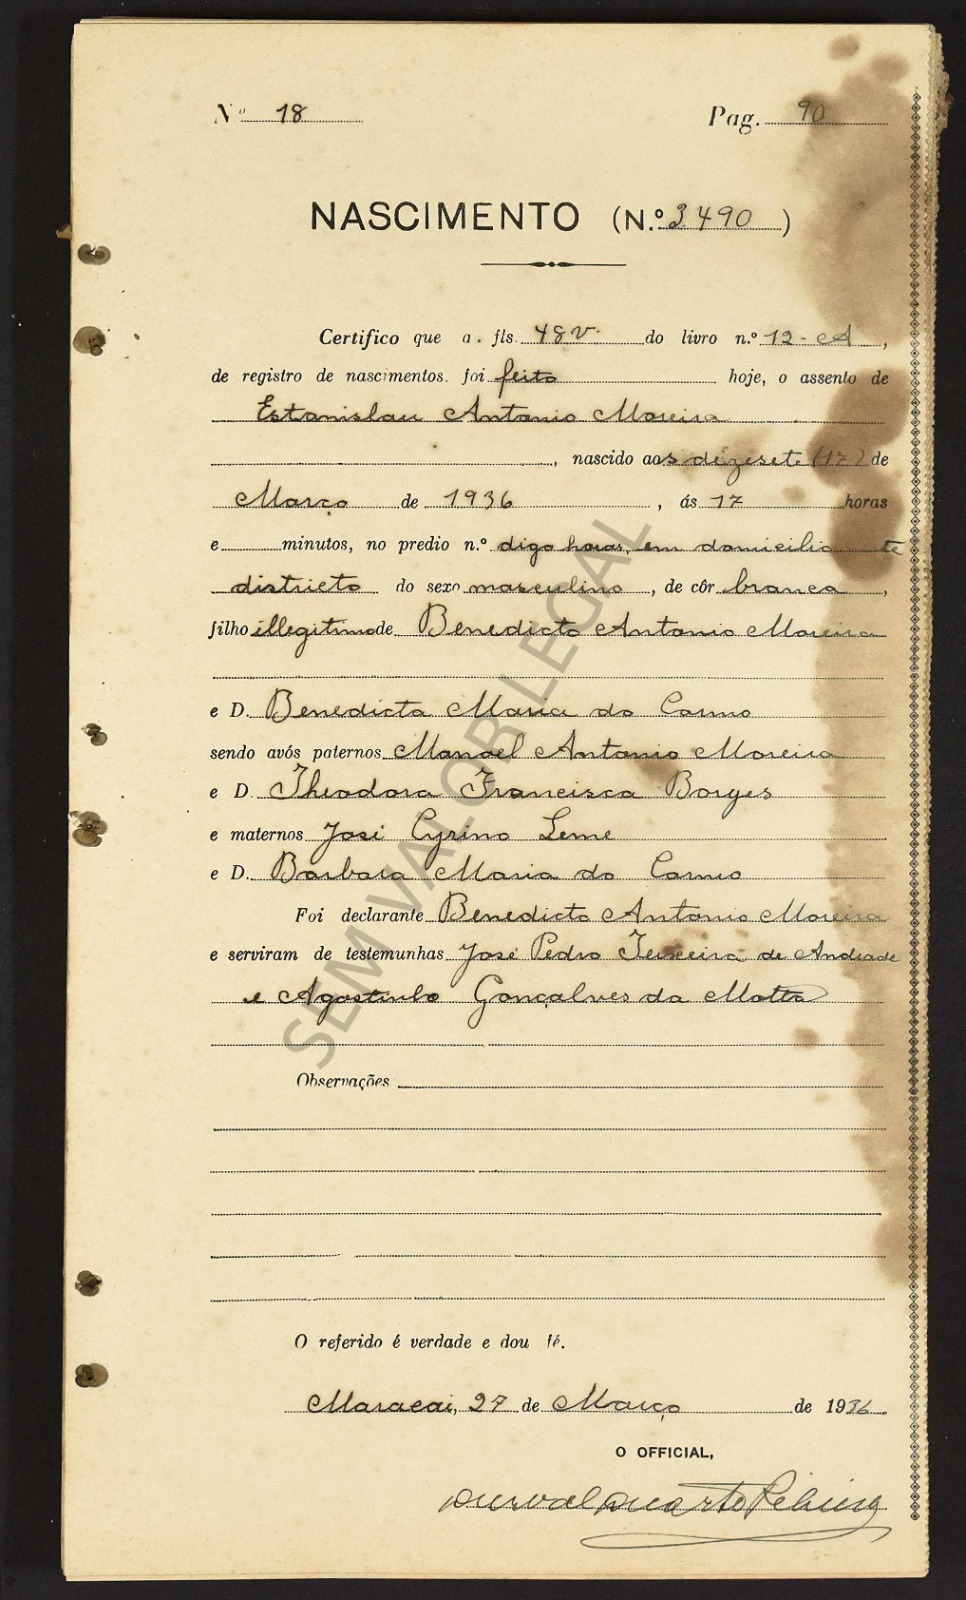 Nº 18 Pag. 90
NASCIMENTO (N.º 3490)
Certifico que a. fls. 48v. do livro n.º 12-A,
de registro de nascimentos. foi feito hoje, o assento de
Estanislau Antonio Moreira
, nascido aos dezesete (17) de
Março de 1936, ás 17 horas
e minutos, no predio n.º digo horas, em domicilio te
districto do sexo masculino, de côr branca,
filho illegitimo de Benedicto Antonio Moreira
e D. Benedicta Maria do Carmo
sendo avós paternos Manoel Antonio Moreira
e D. Theodora Francisca Borges
e maternos José Cyrino Leme
e D. Barbara Maria do Carmo
Foi declarante Benedicto Antonio Moreira
e serviram de testemunhas José Pedro Teixeira de Andrade
e Agostinho Gonçalves da Motta
Observações
O referido é verdade e dou fé.
Maracai, 27 de Março de 1936
O OFFICIAL,
Durval Duarte
SEM VALOR LEGAL